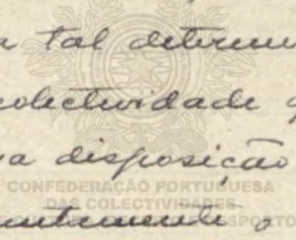 a tal determi
colectividade
a disposição
CONFEDERAÇÃO PORTUGUESA
DAS COLECTIVIDADES